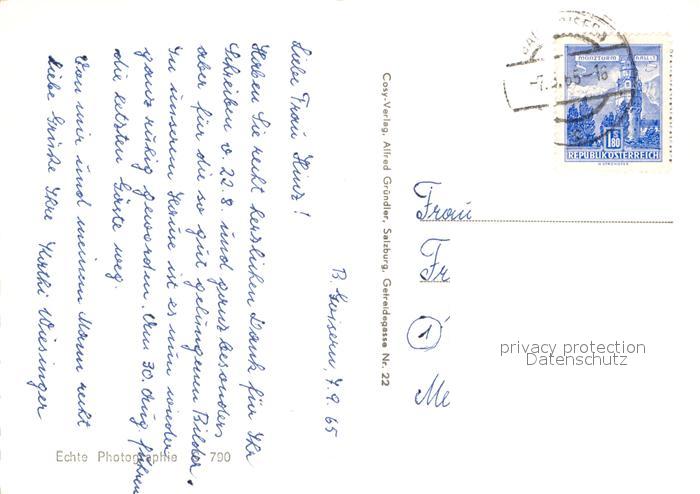 B. Goisern, 7.9.65
Liebe Frau Hinz!
Haben Sie recht herzlichen Dank für Ihr
Schreiben v. 22.8. und ganz besonders
aber für die so gut gelungenen Bilder.
In unserem Hause ist es nun wieder
ganz ruhig geworden. Am 30. Aug fuhren
die letzten Gäste weg.
Von mir und meinem Mann recht
liebe Grüße Ihre Kathi Wiesinger
Echte Photographie 790
Cosy-Verlag, Alfred Gründler, Salzburg, Getreidegasse Nr. 22
MÜNZTURM HALL i. T.
-7.9.65-16
1.80
REPUBLIK ÖSTERREICH
Frau
Fr
1
Me
privacy protection
Datenschutz